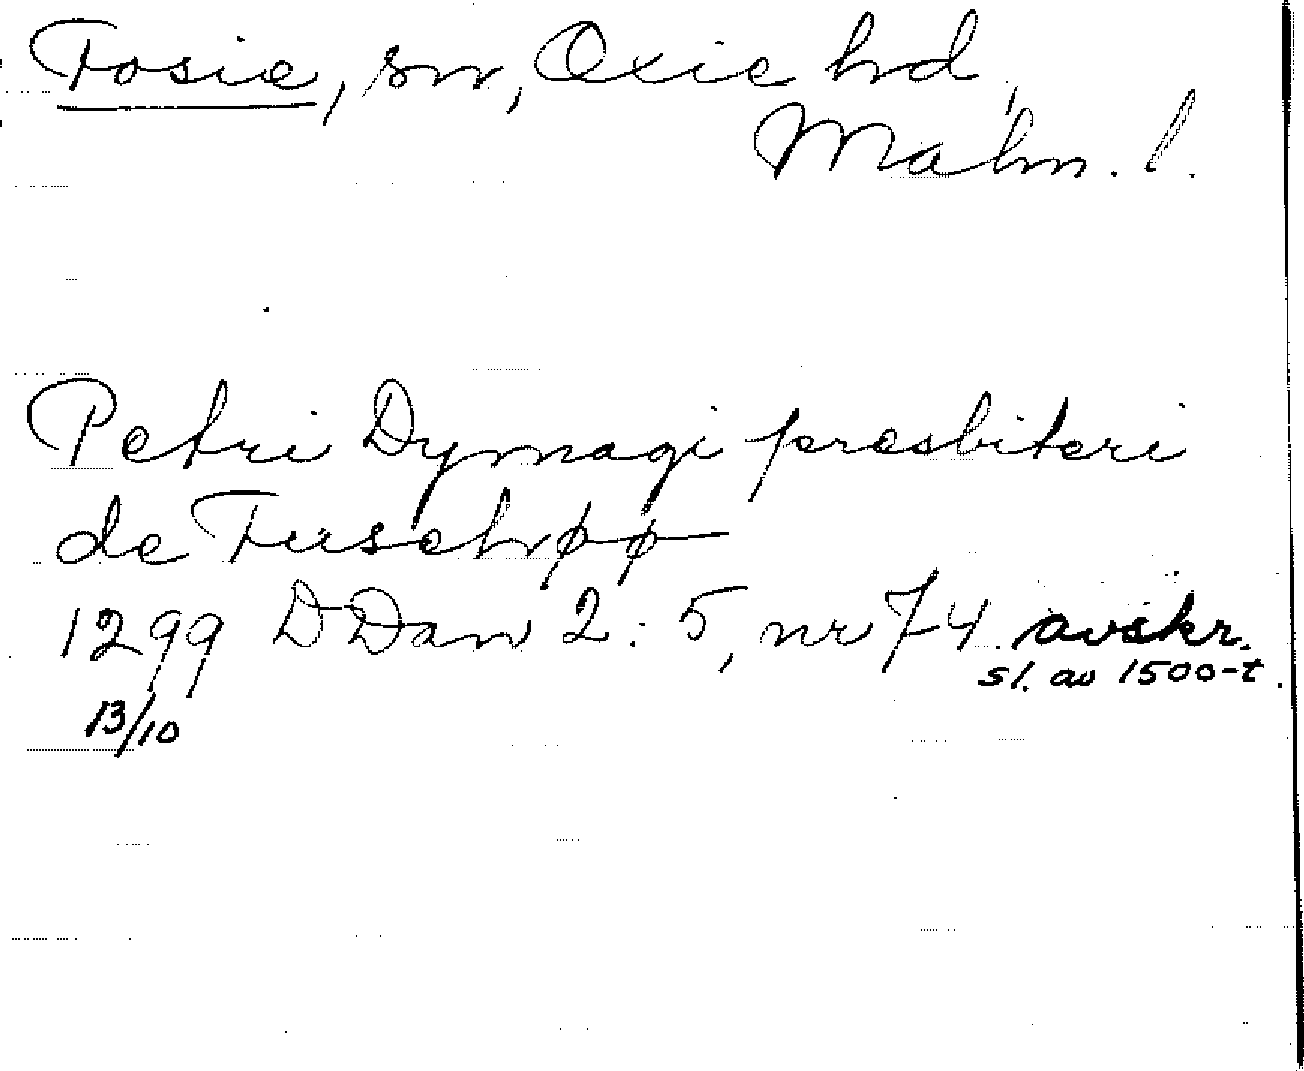 Fosie, sn, Oxie hd,
Malm. l.
Petri Dymagi presbiteri
de Fusehøø
1299 DDan 2:5, nr 74. avskr.
sl. av 1500-t.
13/10